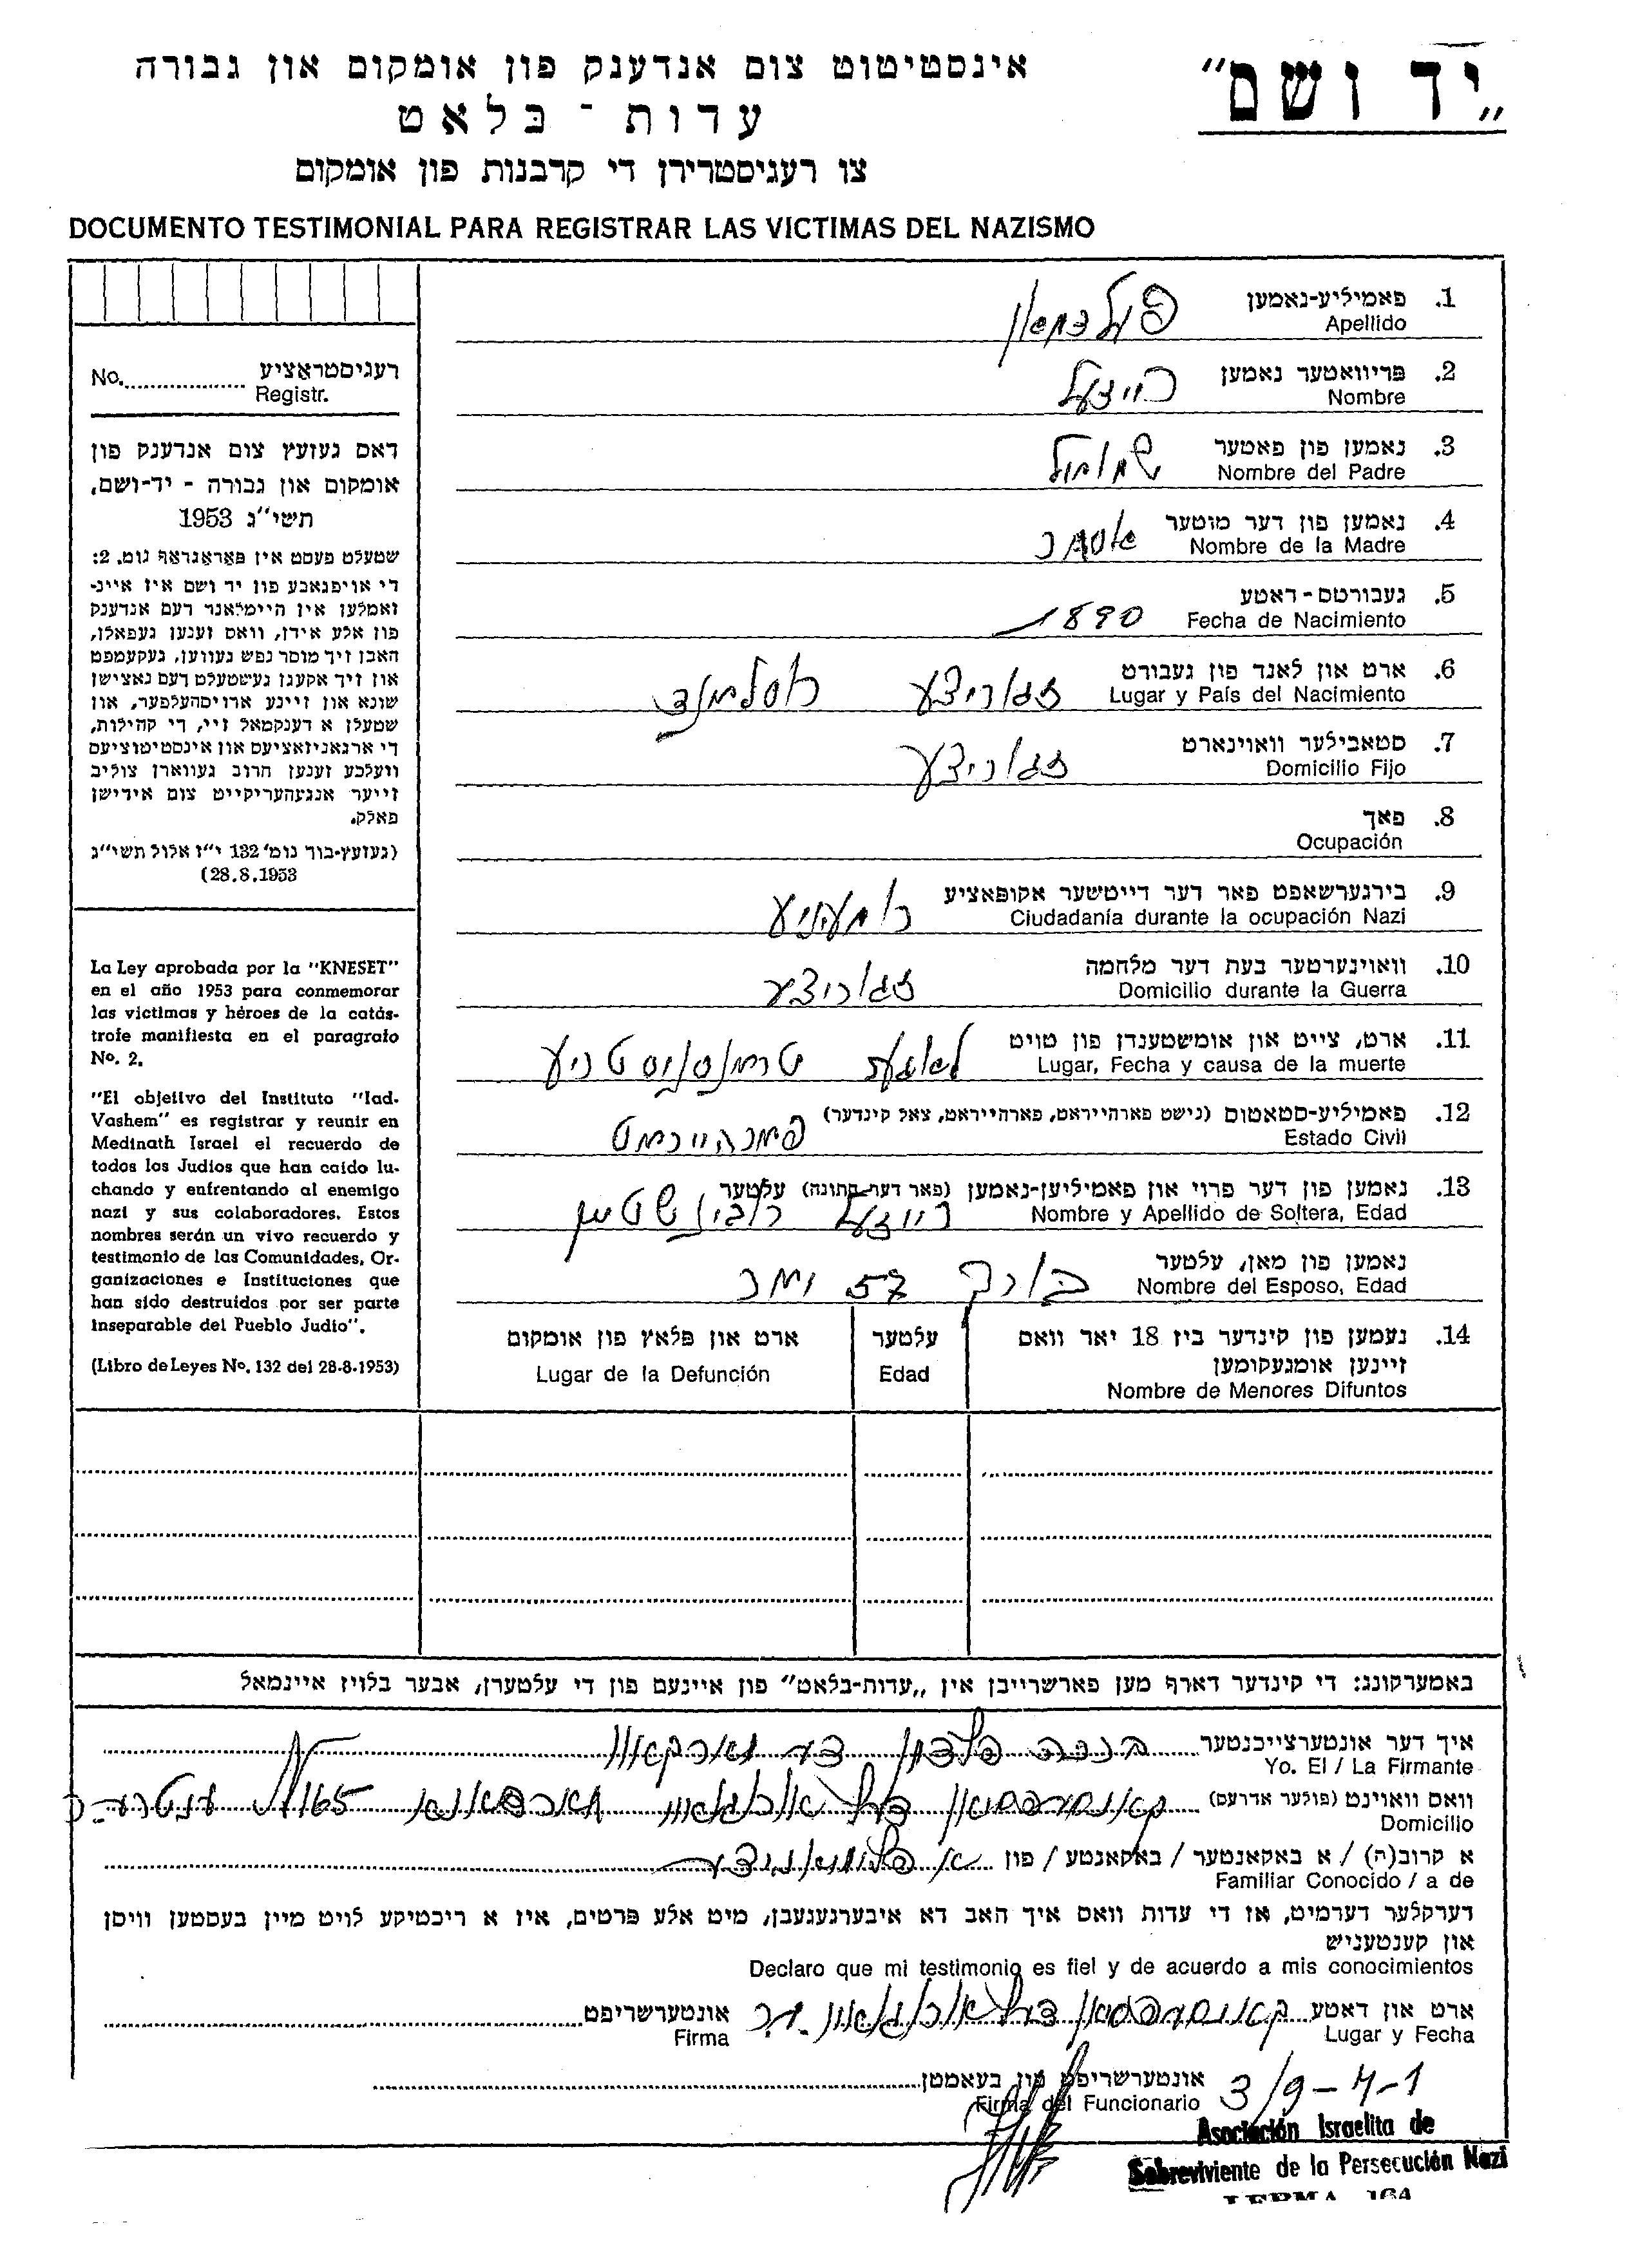 „יד ושם"
אינסטיטוט צום אנדענק פון אומקום און גבורה
עדות - בלאט
צו רעגיסטרירן די קרבנות פון אומקום
DOCUMENTO TESTIMONIAL PARA REGISTRAR LAS VICTIMAS DEL NAZISMO
רעגיסטראציע
No. Registr.
דאס געזעץ צום אנדענק פון
אומקום און גבורה - יד-ושם,
תשי"ג 1953
שטעלט פעסט אין פאראגראף נומ. 2:
די אויפגאבע פון יד ושם איז איינ-
זאמלען אין היימלאנד דעם אנדענק
פון אלע אידן, וואס זענען געפאלן,
האבן זיך מוסר נפש געווען, געקעמפט
און זיך אקעגן געשטעלט דעם נאצישן
שונא און זיינע ארויסהעלפער, און
שטעלן א דענקמאל זיי, די קהילות,
די ארגאניזאציעס און אינסטיטוציעס
וועלכע זענען חרוב געווארן צוליב
זייער אנגעהעריקייט צום אידישן
פאלק.
(געזעץ-בוך נומ' 132 י"ז אלול תשי"ג
28.8.1953)
La Ley aprobada por la "KNESET"
en el año 1953 para conmemorar
las victimas y héroes de la catás-
trofe manifiesta en el paragrafo
No. 2.
"El objetivo del Instituto "Iad-
Vashem" es registrar y reunir en
Medinath Israel el recuerdo de
todos los Judios que han caido lu-
chando y enfrentando al enemigo
nazi y sus colaboradores. Estos
nombres serán un vivo recuerdo y
testimonio de las Comunidades, Or-
ganizaciones e Instituciones que
han sido destruidos por ser parte
inseparable del Pueblo Judio".
(Libro de Leyes No. 132 del 28-8-1953)
1. פאמיליע-נאמען
Apellido
2. פריוואטער נאמען רייזעל
Nombre
3. נאמען פון פאטער שמואל
Nombre del Padre
4. נאמען פון דער מוטער אסתר
Nombre de la Madre
5. געבורטס-דאטע 1890
Fecha de Nacimiento
6. ארט און לאנד פון געבורט זגוריצע רוסלאנד
Lugar y País del Nacimiento
7. סטאבילער וואוינארט זגוריצע
Domicilio Fijo
8. פאך
Ocupación
9. בירגערשאפט פאר דער דייטשער אקופאציע רומעניע
Ciudadanía durante la ocupación Nazi
10. וואוינערטער בעת דער מלחמה זגוריצע
Domicilio durante la Guerra
11. ארט, צייט און אומשטענדן פון טויט טראנסניסטריע
Lugar, Fecha y causa de la muerte
12. פאמיליע-סטאטוס (נישט פארהייראט, פארהייראט, צאל קינדער) פארהייראט
Estado Civil
13. נאמען פון דער פרוי און פאמיליען-נאמען (פאר דער חתונה) עלטער
רייזעל רובינשטיין
Nombre y Apellido de Soltera, Edad
נאמען פון מאן, עלטער ברוך 57 יאר
Nombre del Esposo, Edad
14. נעמען פון קינדער ביז 18 יאר וואס
זיינען אומגעקומען
Nombre de Menores Difuntos
עלטער
Edad
ארט און פלאץ פון אומקום
Lugar de la Defunción
באמערקונג: די קינדער דארף מען פארשרייבן אין „עדות-בלאט" פון איינעם פון די עלטערן, אבער בלויז איינמאל
איך דער אונטערצייכנטער
Yo. El / La Firmante
וואס וואוינט (פולער אדרעס)
Domicilio
א קרוב(ה) / א באקאנטער / באקאנטע / פון
Familiar Conocido / a de
דערקלער דערמיט, אז די עדות וואס איך האב דא איבערגעגעבן, מיט אלע פרטים, איז א ריכטיקע לויט מיין בעסטען וויסן
און קענטעניש
Declaro que mi testimonio es fiel y de acuerdo a mis conocimientos
ארט און דאטע
Lugar y Fecha
אונטערשריפט
Firma
אונטערשריפט פון בעאמטן
Firma del Funcionario
Asociación Israelita de
Sobreviviente de la Persecución Nazi
LERMA 164